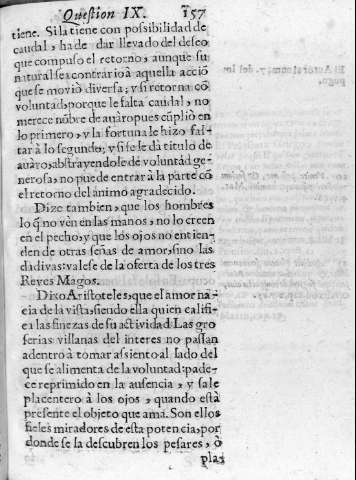 Question IX. 157
tiene. Si la tiene con possibilidad de
caudal, ha de dar llevado del deseo
que compuso el retorno, aunque su
natural sea contrario à aquella acciō
que se moviò diversa; y si retorna cō
voluntad, porque le falta caudal, no
merece nōbre de avaro pues cūpliò en
lo primero, y la fortuna le hizo fal-
tar à lo segundo; y si se le dà titulo de
avaro, abstrayendole de volūtad ge-
nerosa, no puede entrar à la parte cō
el retorno del animo agradecido.
Dize tambien, que los hombres
lo q̄ no vèn en las manos, no lo creen
en el pecho, y que los ojos no entien-
den de otras señas de amor, sino las
dadivas: valese de la oferta de los tres
Reyes Magos.
Dixo Aristoteles, que el amor na-
cia de la vista, siendo ella quien califi-
ca las finezas de su actividad. Las gro
serias villanas del interes no passan
adentro à tomar assiento al lado del
que se alimenta de la voluntad: pade-
ce reprimido en la ausencia, y sale
placentero à los ojos, quando està
presente el objeto que ama. Son ellos
fieles miradores de esta potencia, por
donde se la descubren los pesares, ò
pla-